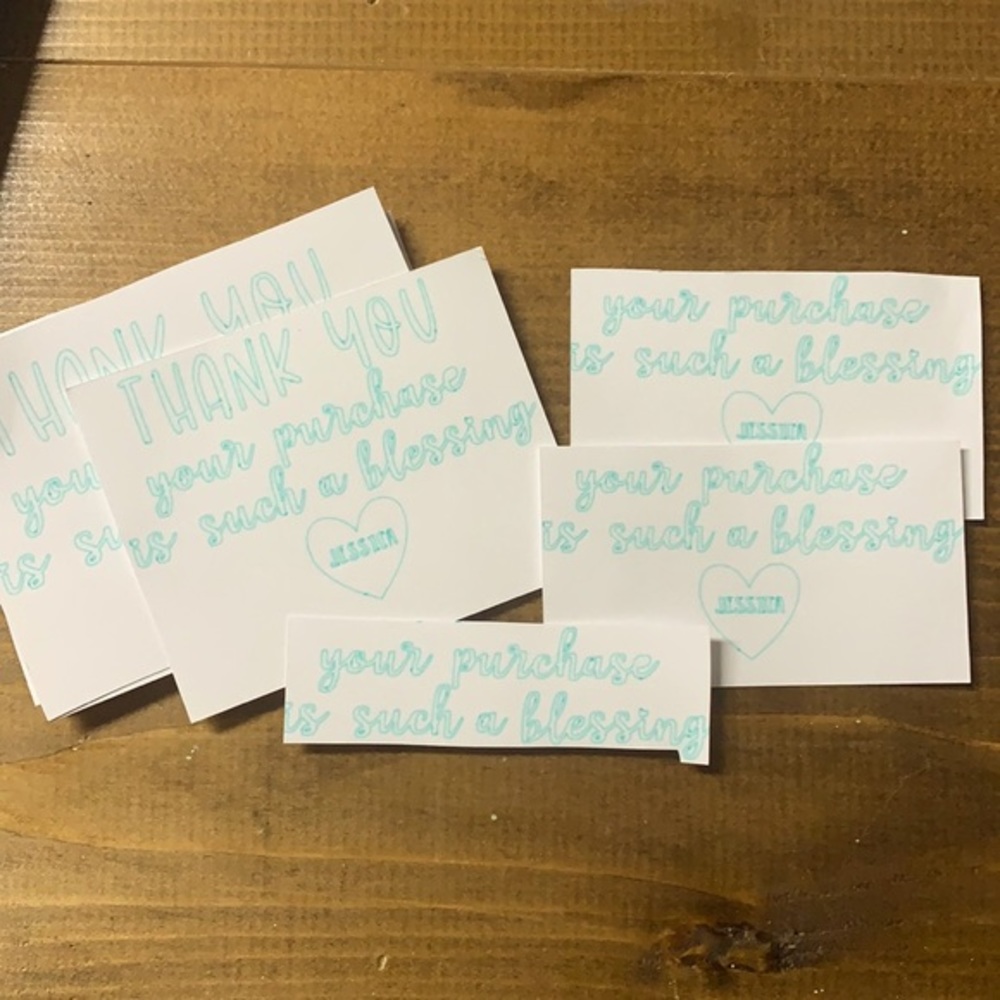 THANK YOU
you
is su
THANK YOU
your purchase
is such a blessing
JESSICA
your purchase
is such a blessing
JESSICA
your purchase
is such a blessing
JESSICA
your purchase
is such a blessing